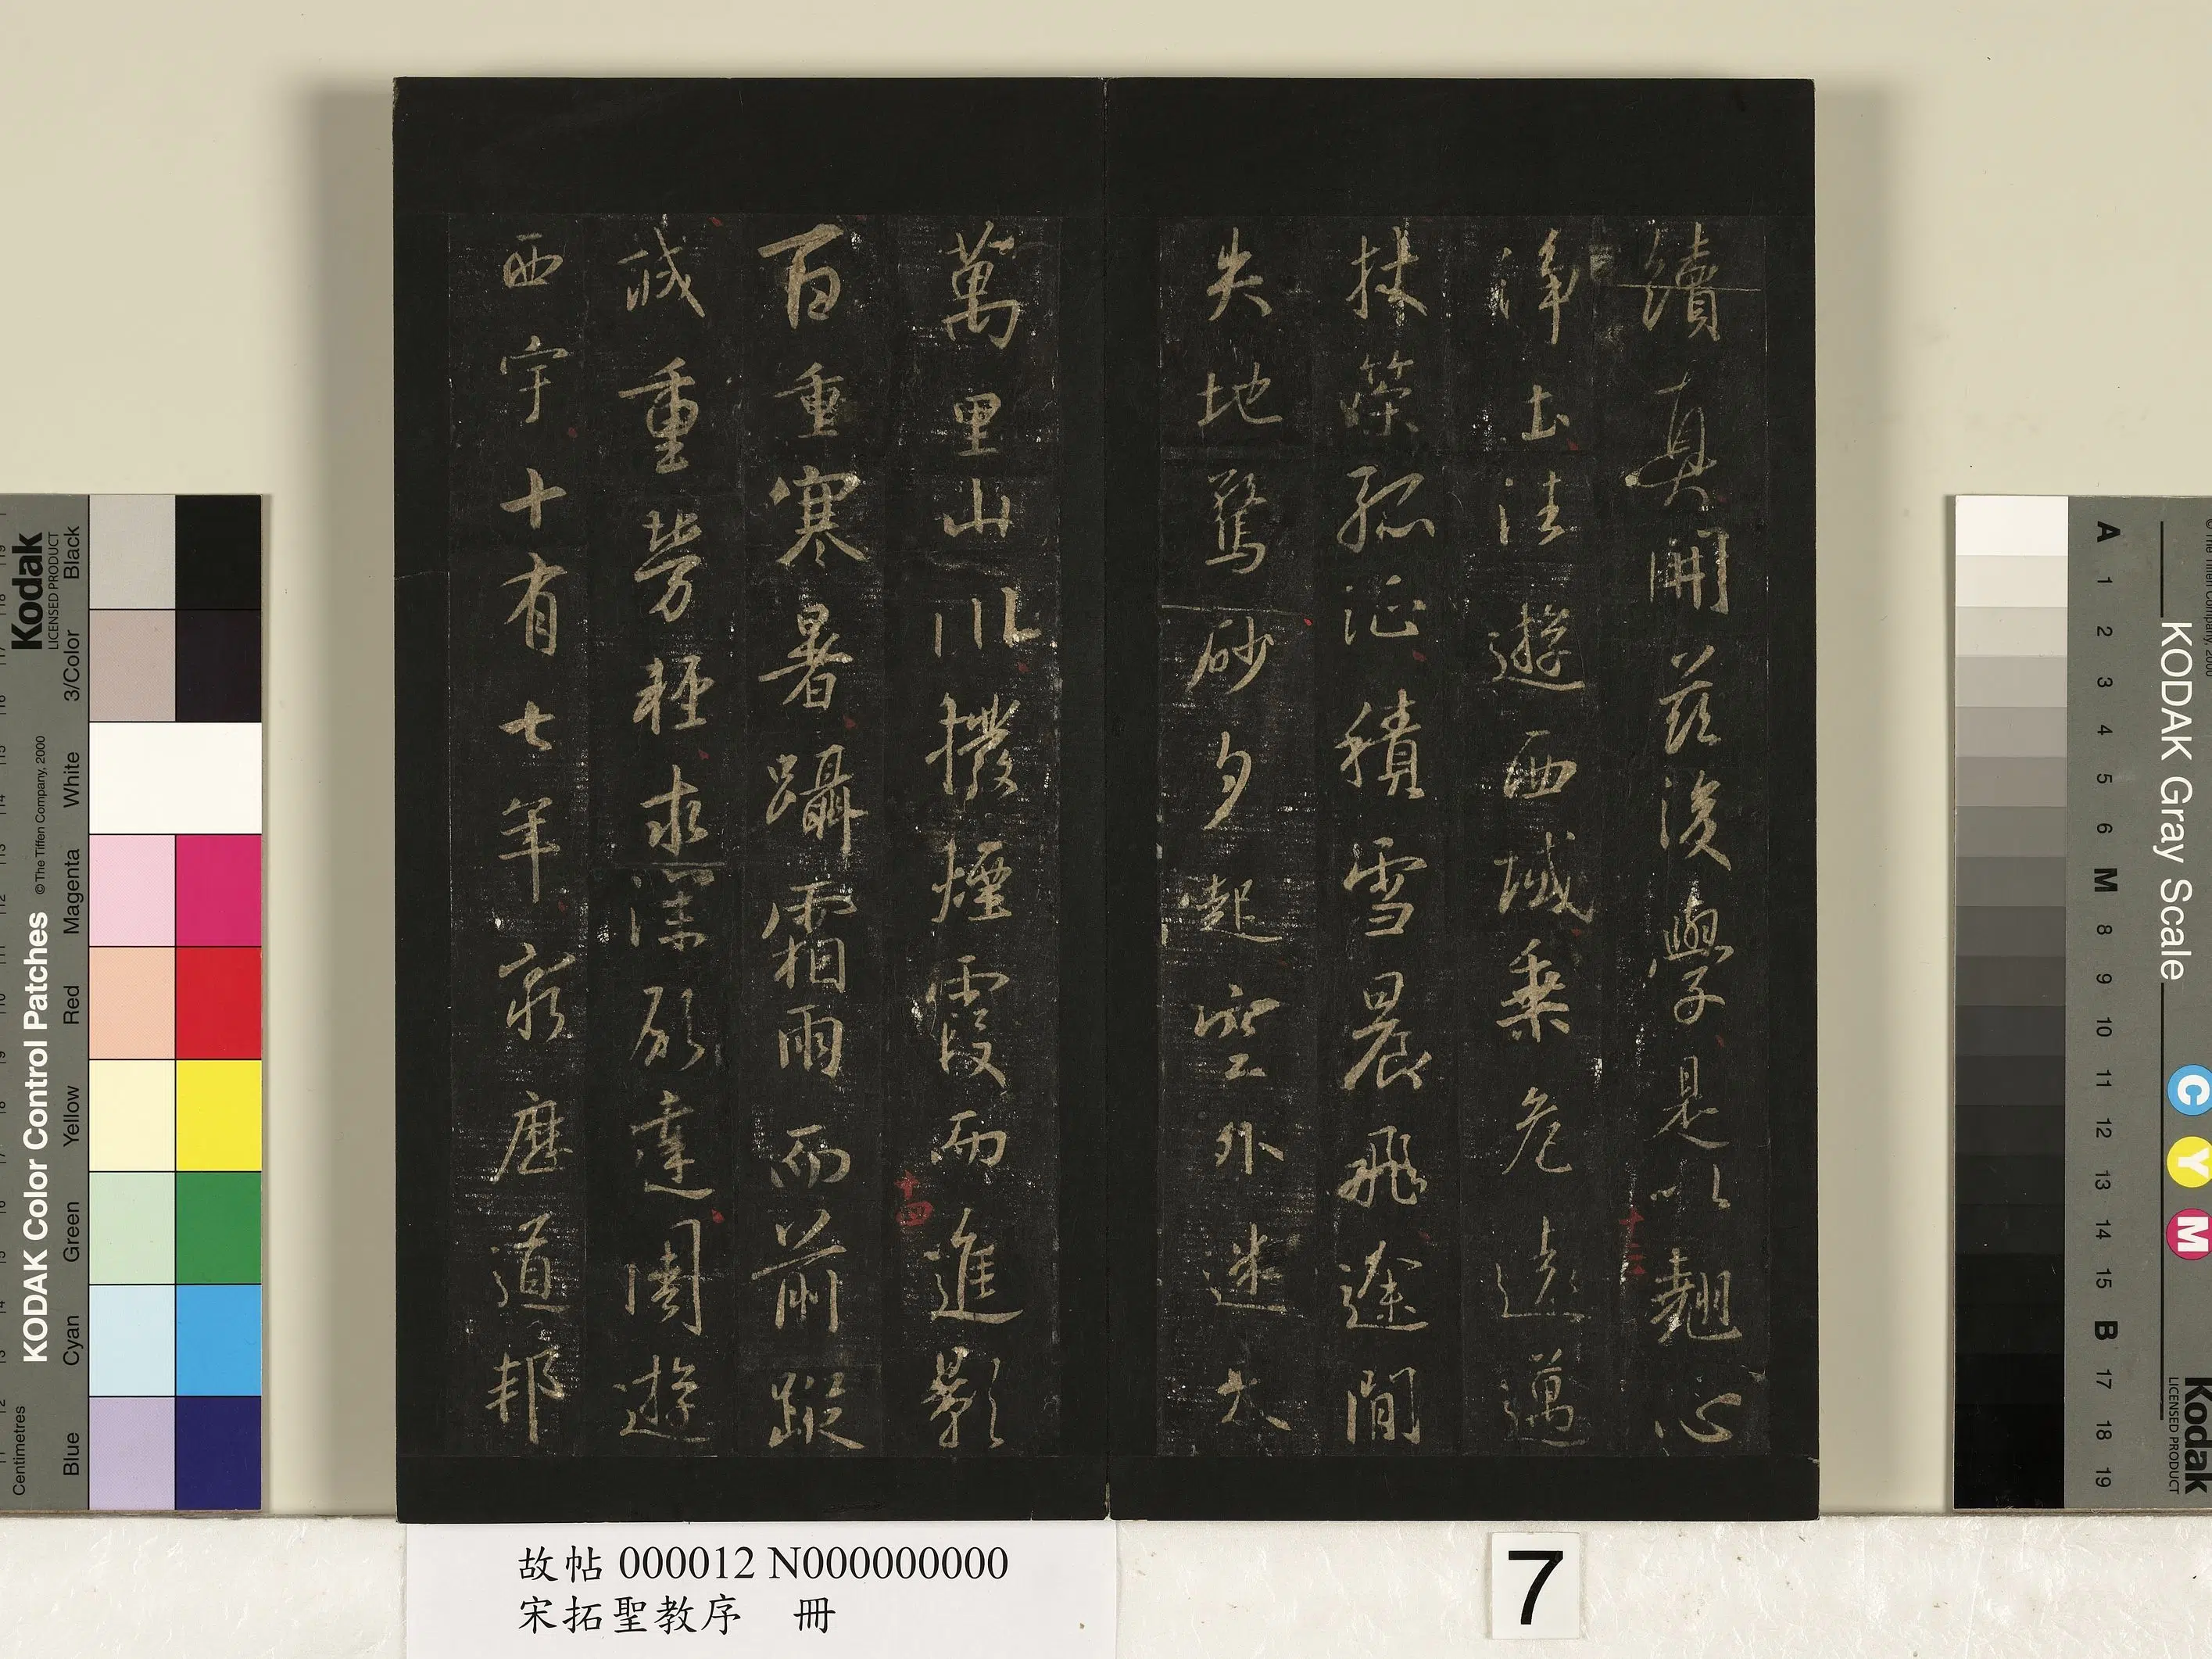 續真開茲後學是以翹心
十三
淨土往遊西域乘危遠邁
杖策孤征積雪晨飛途閒
失地驚砂夕起空外迷天
萬里山川撥煙霞而進影
十四
百重寒暑躡霜雨而前蹤
誠重勞輕求深願達周遊
西宇十有七年窮歷道邦
故帖 000012 N000000000
宋拓聖教序 冊
7
KODAK Color Control Patches
© The Tiffen Company, 2000
Kodak
LICENSED PRODUCT
Centimetres
Blue
Cyan
Green
Yellow
Red
Magenta
White
3/Color
Black
KODAK Gray Scale
Kodak
LICENSED PRODUCT
C
Y
M
A
1
2
3
4
5
6
M
8
9
10
11
12
13
14
15
B
17
18
19